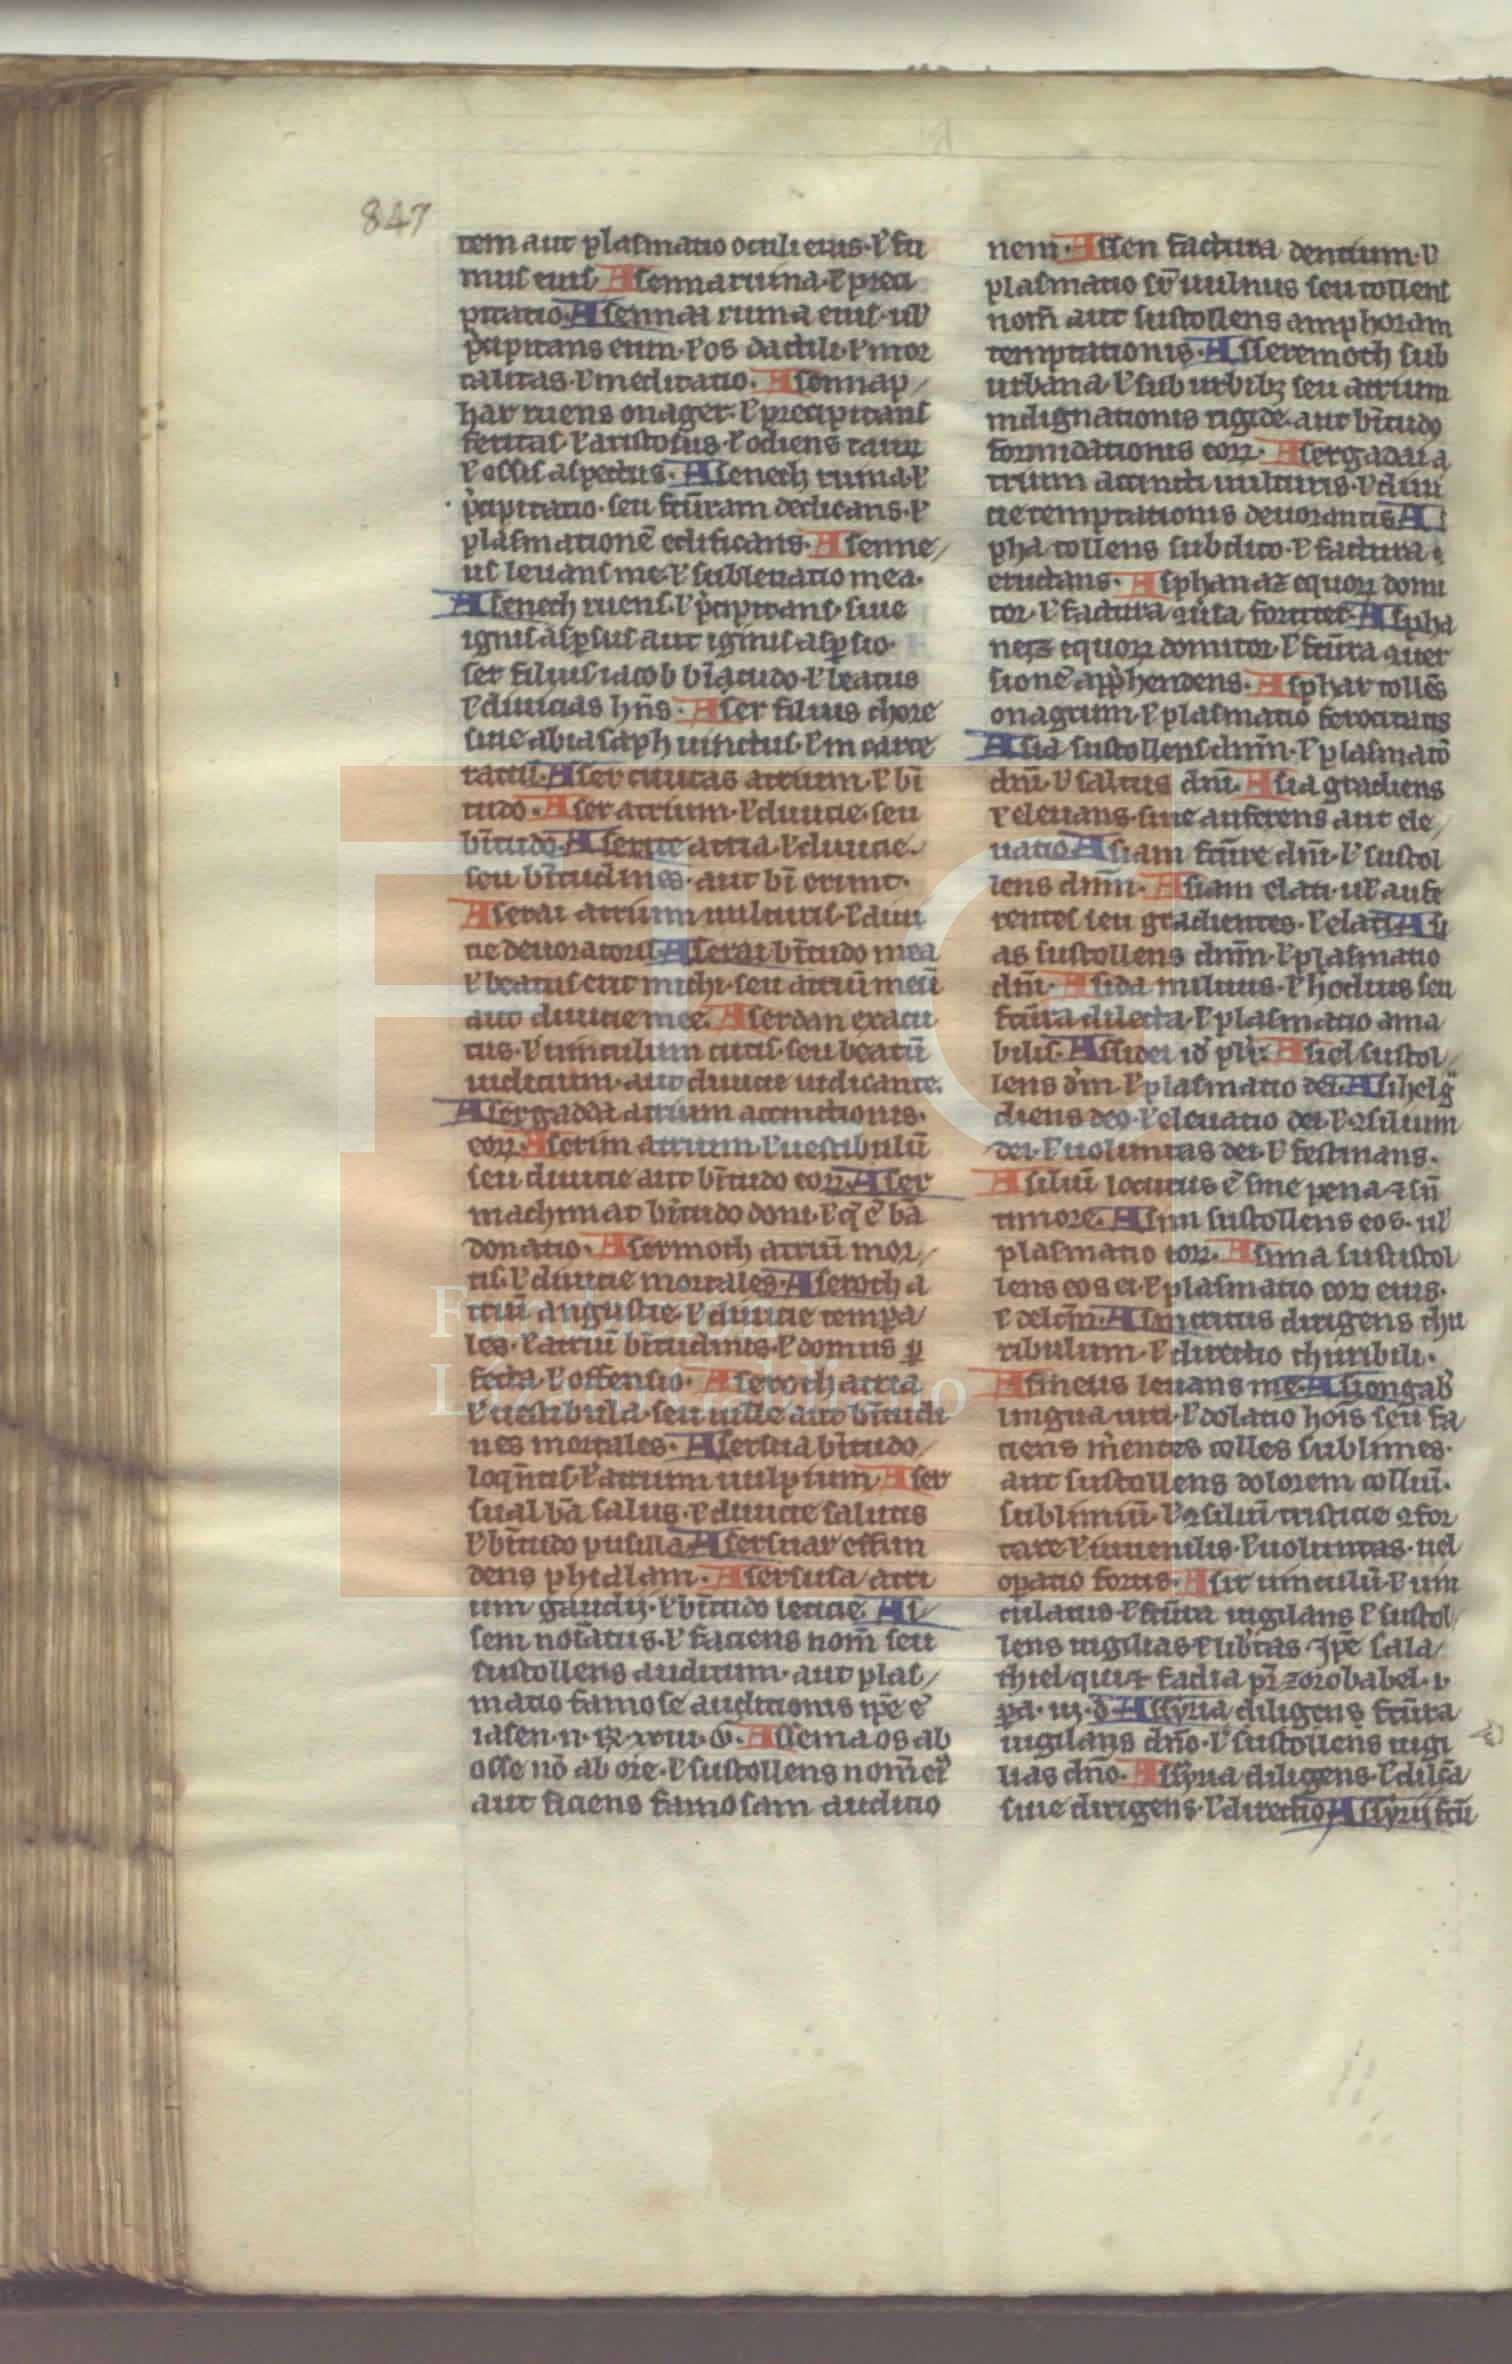 847
tem aut plasmatio oculi eius. ł fu
mus eius. Asenna ruina. ł preci
pitatio. Asennai ruina eius. ul'
p̄cipitans eum. ł os dactili. ł mor
talitas. ł meditatio. Asennap/
har ruens onager. ł precipitans
feritas. ł aristosus. ł odiens taur
ł ossis aspectus. Asenech ruina. ł
p̄cipitatio. seu fcūram dedicans. ł
plasmationē edificans. Asenne/
us leuans me. ł subleuatio mea.
Asenech ruens. ł p̄cipitans. siue
ignis asp̄sus aut ignius asp̄sio.
ser filius iacob b̄titudo. ł beatus
ł diuicias hn̄s. Aser filius chore
siue abiasaph uinctus. ł in carce
ratus. Aser ciuitas atrium. ł b̄ti
tudo. Aser atrium. ł diuicie. seu
b̄titudo. Aserite atria. ł diuicie.
seu b̄titudines. aut b̄ti erunt.
Aserai atrium uulturis. ł diui
cie deuoratoris. Aserai b̄titudo mea
ł beatus erit michi. seu atriū meū
aut diuicie mee. Aserdan exacu
tus. ł uinculum cutis. seu beatū
iudicium. aut diuicie iudicante.
Asergadda atrium accinctionis.
eoꝝ. Aserim atrium. ł uestibulū
seu diuicie aut b̄titudo eoꝝ. Aser
machinat b̄titudo doni. ł q̄ ē b̄a
donatio. Asermoth atriū mor/
tis. ł diuicie mortales. Aseroth a
triū angustie. ł diuicie tempa/
les. ł atriū b̄titudinis. ł domus ꝑ
fecta. ł offensio. Aseroth atria
ł uestibula. seu uille aut b̄titudi
nes mortales. Asersua b̄titudo/
loqn̄tis. ł atrium uulpium. Aser
sual b̄a salus. ł diuicie salutis
ł b̄titudo pusilla. Asersuar effun
dens phialam. Asersusa atri
um gaudij. ł b̄titudo leticie. As/
sem nosatus. ł faciens nom̄ seu
sustollens auditum. aut plas/
matio famose auditionis ip̄e ē
iasen. Assema os ab
osse nō ab ore. ł sustollens nom̄ ei'
aut faciens famosam auditio
nem. Assen factura dentium. ł
plasmatio uulnus seu tollens
nom̄ aut sustollens amphoram
temptationis. Asseremoth sub
urbana. ł sub urbibꝫ seu atrium
indignationis rigide. aut b̄titudo
formidationis eoꝝ. Asergadai a
trium accincti uulturis. ł diui
cie temptationis deuorantis. As
pha tollens subdito. ł factura
erudans. Asphanaz equoꝝ domi
tor. ł factura forties. Aspha
nez equoꝝ domitor. ł fcūra auer
sionē app̄hendens. Asphar tollēs
onagrum. ł plasmatio ferocitatis
Asia sustollens dn̄m. ł plasmatō
dn̄i. ł saltus dn̄i. Asia gradiens
ł eleuans. siue auferens aut ele/
uatio. Asiam fcūre dn̄i. ł sustol
lens dn̄m. Asiam elati. uł aufe
rentes seu gradientes. ł elati. Asi
as sustollens dn̄m. ł plasmatio
dn̄i. Asida miluus. ł hodius seu
fcūra dilecta. ł plasmatio ama
bilis. Assidei. Asiel sustol/
lens dm̄. ł plasmatio dei. Asihel g̃
diens deo. ł eleuatio dei. ł ɔsilium
dei. ł uoluntas dei. ł festinans.
Asiliū locutus ē sine pena ⁊ sn̄
timore. Asim sustollens eos. ul'
plasmatio eoꝝ. Asima sustol
lens eos ei. ł plasmatio eoꝝ eius.
ł delc̄m. Asincritus dirigens thu
ribulum. ł directio thuribili.
Asineus leuans me. Asiongab'
ł dolatio hoīs seu fa
ciens m̄entes colles sublimes.
aut sustollens dolorem colliū.
sublimiū. ł ɔsiliū tristicie ɔfor
tate. ł iuuenilis. ł uoluntas. uel
opatio fortis. Asir uinculū. ł uin
culatus. ł fcūra uigilans ł sustol/
lens uigilias ł lib̄tas. Ip̄e sala/
thiel qui ⁊ fadia pr̄ zorobabel.
Assyria diligens fcūra
uigilans dn̄o. ł sustollens uigi
lias dn̄o. Assyria diligens. ł
siue dirigens. ł directio. Assyrij fcū